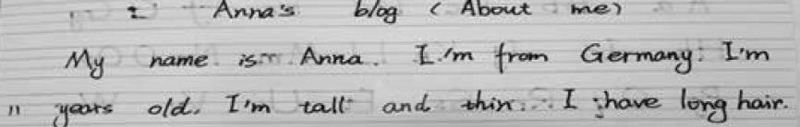 1 Anna's blog (About me)
My name is Anna. I'm from Germany. I'm
11 years old. I'm tall and thin. I have long hair.